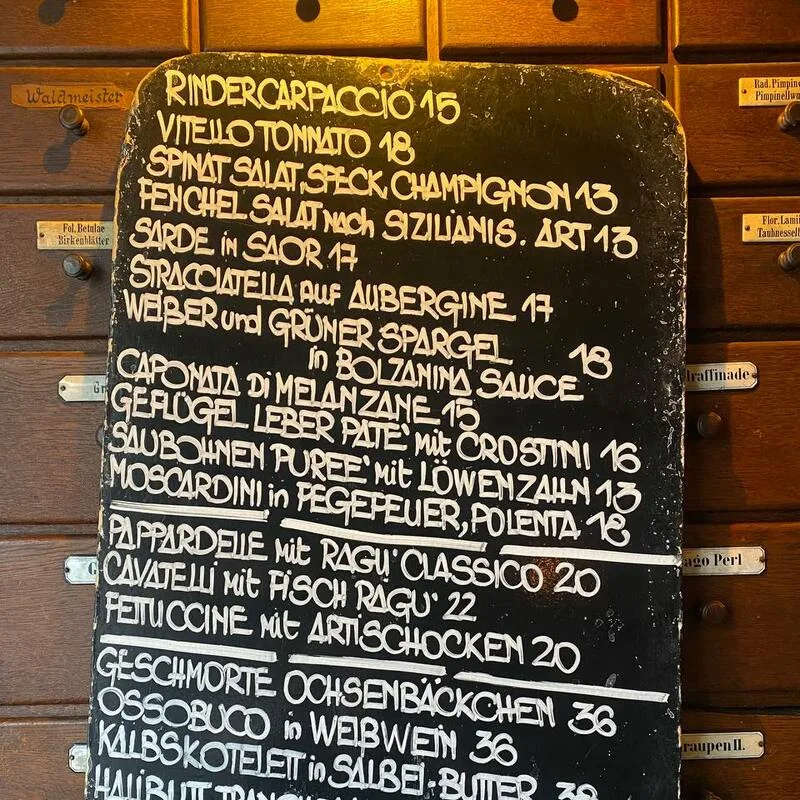 RINDERCARPACCIO 15
VITELLO TONNATO 18
SPINAT SALAT, SPECK, CHAMPIGNON 13
FENCHEL SALAT nach SIZILIANIS. ART 13
SARDE in SAOR 17
STRACCIATELLA auf AUBERGINE 17
WEIßER und GRÜNER SPARGEL
in BOLZANINA SAUCE 18
CAPONATA Di MELANZANE 15
GEFLÜGEL LEBER PATE' mit CROSTINI 16
SAUBOHNEN PUREE' mit LÖWENZAHN 13
MOSCARDINI in FEGEFEUER, POLENTA 18
PAPPARDELLE mit RAGU' CLASSICO 20
CAVATELLI mit FISCH RAGU' 22
FETTUCCINE mit ARTISCHOCKEN 20
GESCHMORTE OCHSENBÄCKCHEN 36
OSSOBUCO in WEIßWEIN 36
KALBSKOTELETT in SALBEI-BUTTER 38
HALIBUTT
Waldmeister
Fol. Betulae
Birkenblätter
Rad. Pimpine
Pimpinellwu
Flor. Lami
Taubnessel
raffinade
ago Perl
raupen II.